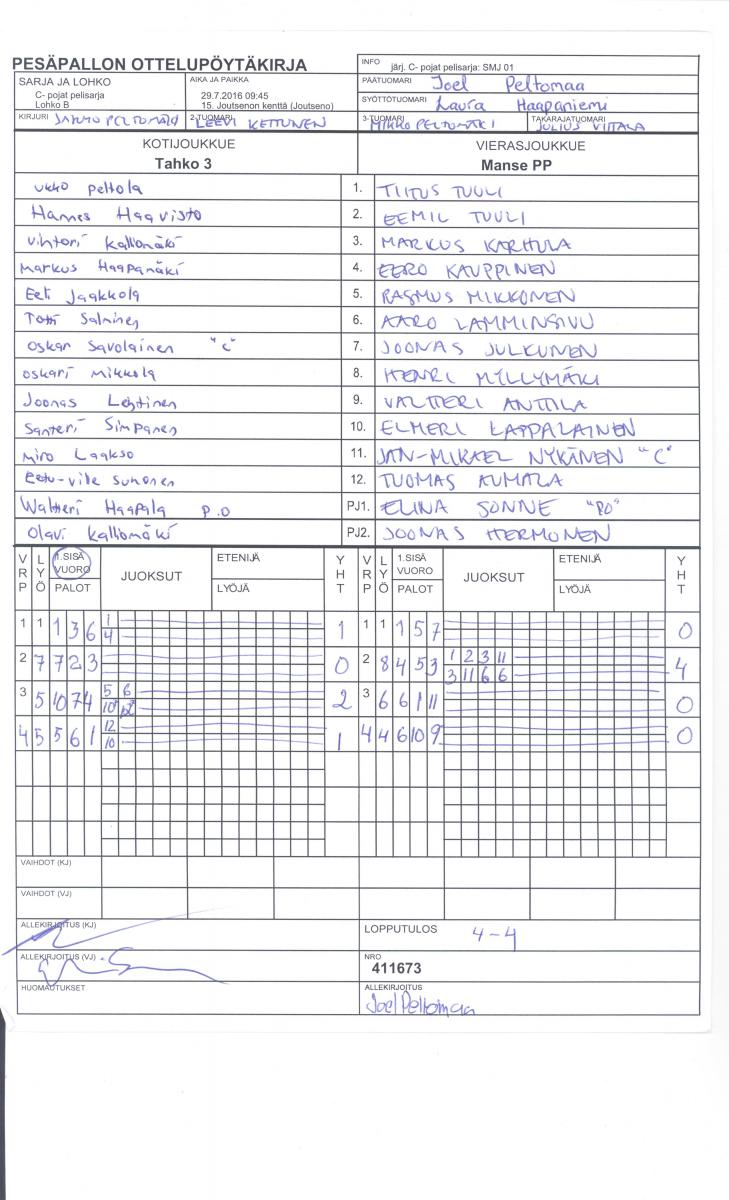 PESÄPALLON OTTELUPÖYTÄKIRJA
INFO järj. C- pojat pelisarja: SMJ 01
SARJA JA LOHKO
C- pojat pelisarja
Lohko B
AIKA JA PAIKKA
29.7.2016 09:45
15. Joutsenon kenttä (Joutseno)
PÄÄTUOMARI Joel Peltomaa
SYÖTTÖTUOMARI Laura Haapaniemi
KIRJURI PELTOMÄKI 2-TUOMARI LEEVI KETTUNEN 3-TUOMARI MIKKO PELTOMÄKI TAKARAJATUOMARI JULIUS VIITALA
KOTIJOUKKUE VIERASJOUKKUE
Tahko 3 Manse PP
Ukko Peltola 1. TIITUS TUULI
Hannes Haavisto 2. EEMIL TUULI
Vihtori Kalliomäki 3. MARKUS KARHULA
Markus Haapamäki 4. EERO KAUPPINEN
Eeti Jaakkola 5. RASMUS MIKKONEN
Totti Salminen 6. AARO LAMMINSIVU
Oskar Savolainen "C" 7. JOONAS JULKUNEN
Oskari Mikkola 8. HENRI MYLLYMÄKI
Joonas Lehtinen 9. VALTTERI ANTTILA
Santeri Simpanen 10. ELMERI LAPPALAINEN
Miro Laakso 11. JAN-MIKAEL NYKÄNEN "C"
Eetu-Ville Suhonen 12. TUOMAS KUMALA
Waltteri Haapala P.O PJ1. ELINA SONNE "PO"
Olavi Kalliomäki PJ2. JOONAS HERMONEN
VRP LYÖ 1.SISÄ VUORO PALOT JUOKSUT ETENIJÄ LYÖJÄ YHT VRP LYÖ 1.SISÄ VUORO PALOT JUOKSUT ETENIJÄ LYÖJÄ YHT
1 1 1 3 6 1 1 1 1 1 5 7 0
4
2 7 7 2 3 0 2 8 4 5 3 1 2 3 11 4
3 11 6 6
3 5 10 7 4 5 6 2 3 6 6 1 11 0
10 12
4 5 5 6 1 12 1 4 4 6 10 9 0
10
VAIHDOT (KJ)
VAIHDOT (VJ)
ALLEKIRJOITUS (KJ) LOPPUTULOS 4-4
ALLEKIRJOITUS (VJ) NRO
411673
HUOMAUTUKSET ALLEKIRJOITUS
Joel Peltomaa